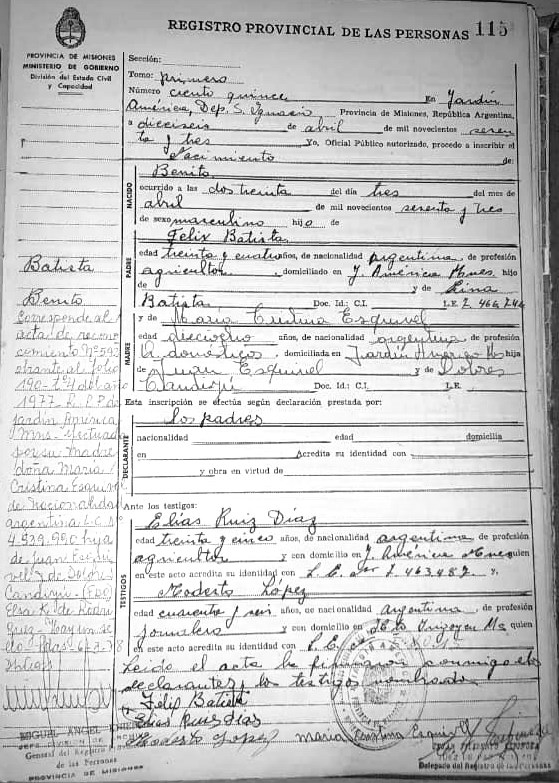 REGISTRO PROVINCIAL DE LAS PERSONAS 115
PROVINCIA DE MISIONES
MINISTERIO DE GOBIERNO
División del Estado Civil
y Capacidad
Sección:
Tomo: primero
Número ciento quince En Jardín
América, Dep. S. Ignacio Provincia de Misiones, República Argentina,
a dieciseis de abril de mil novecientos sesen
ta y tres Yo, Oficial Público autorizado, procedo a inscribir el
Nacimiento de:
NACIDO
Benito
ocurrido a las dos treinta del día tres del mes de
abril de mil novecientos sesenta y tres
de sexo masculino hijo de
PADRE
Felix Batista
edad treinta y cuatro años, de nacionalidad argentina de profesión
agricultor, domiciliado en J. América Mnes hijo
de y de Lina
Batista Doc. Id.: C.I. L.E. 2.466.246
MADRE
y de Maria Cristina Esquivel
edad dieciocho años, de nacionalidad argentina, de profesión
Q. domésticos, domiciliada en Jardín América Ms hija
de Juan Esquivel y de Dolores
Candirú Doc. Id.: C.I. L.E.
Esta inscripción se efectúa según declaración prestada por:
DECLARANTE
los padres
nacionalidad edad domicilia
en Acredita su identidad con
y obra en virtud de
Ante los testigos:
TESTIGOS
Elías Ruiz Díaz
edad treinta y cinco años, de nacionalidad argentina de profesión
agricultor y con domicilio en J. América Mnes quien
en este acto acredita su identidad con L. E. 2.463.487 y,
Modesto López
edad cuarenta y seis años, de nacionalidad Argentina, de profesión
jornalero y con domicilio en Hto Yrigoyen Ms quien
en este acto acredita su identidad con L.E.
Leido el acta la firmaron conmigo los
declarantes y los testigos nombrados
Felix Batista
Elias Ruiz Dias
Modesto Lopez maria Cristina Esquivel
Delegado del Registro de las Personas
Batista
Benito
Corresponde al
acta de recono
cimiento Nº 593
obrante al folio
190 del año
1977 R.P.P. de
Jardín América
Mns. efectuada
por su madre
doña Maria
Cristina Esquivel
de nacionalidad
argentina L.C. Nº
4.939.990 hija
de Juan Esqui
vel y de Dolores
Candirú - (FDO)
Elsa K. de Rodri
guez - Hay un se
llo Pdas 6-7-78
MIGUEL ANGEL
General del Registro
de las Personas
PROVINCIA DE MISIONES